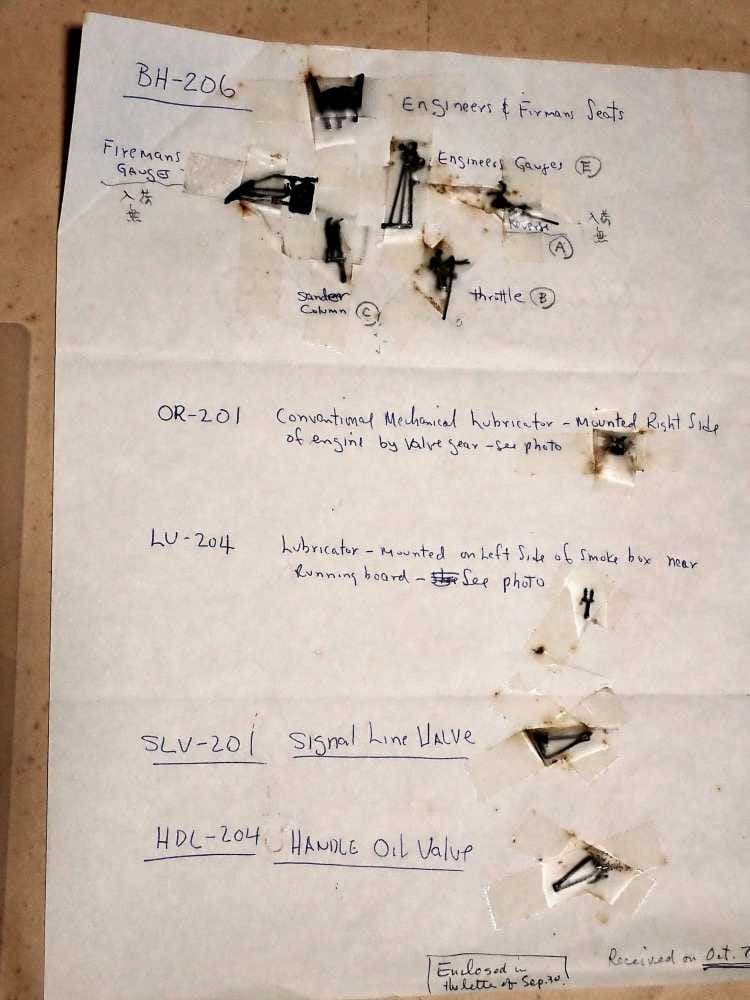 BH-206
Engineers & Firmans Seats
Firemans
GAUGES
Engineers Gauges Ⓔ
入荷
無
Reverse
入荷
無
Ⓐ
Sander
Column Ⓒ
throttle Ⓑ
OR-201 Conventional Mechanical Lubricator - Mounted Right Side
of engine by Valve gear - see photo
LU-204 Lubricator - Mounted on Left Side of Smoke box near
Running board - See photo
SLV-201 Signal Line VALVE
HDL-204 HANDLE Oil Valve
Enclosed in
the lette of Sep.30.
Received on Oct. 7